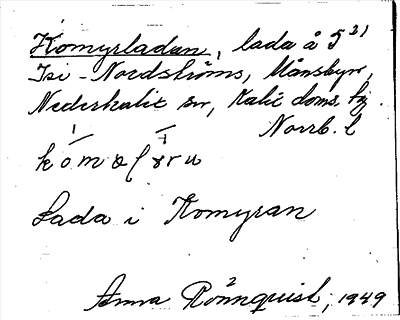 Komyrladan, lada å 5²¹
Isi-Nordströms, Månsbyn,
Nederkalix sn, Kalix doms. hg.
Norrb. l
Lada i Komyran
Anna Rönnquist, 1949